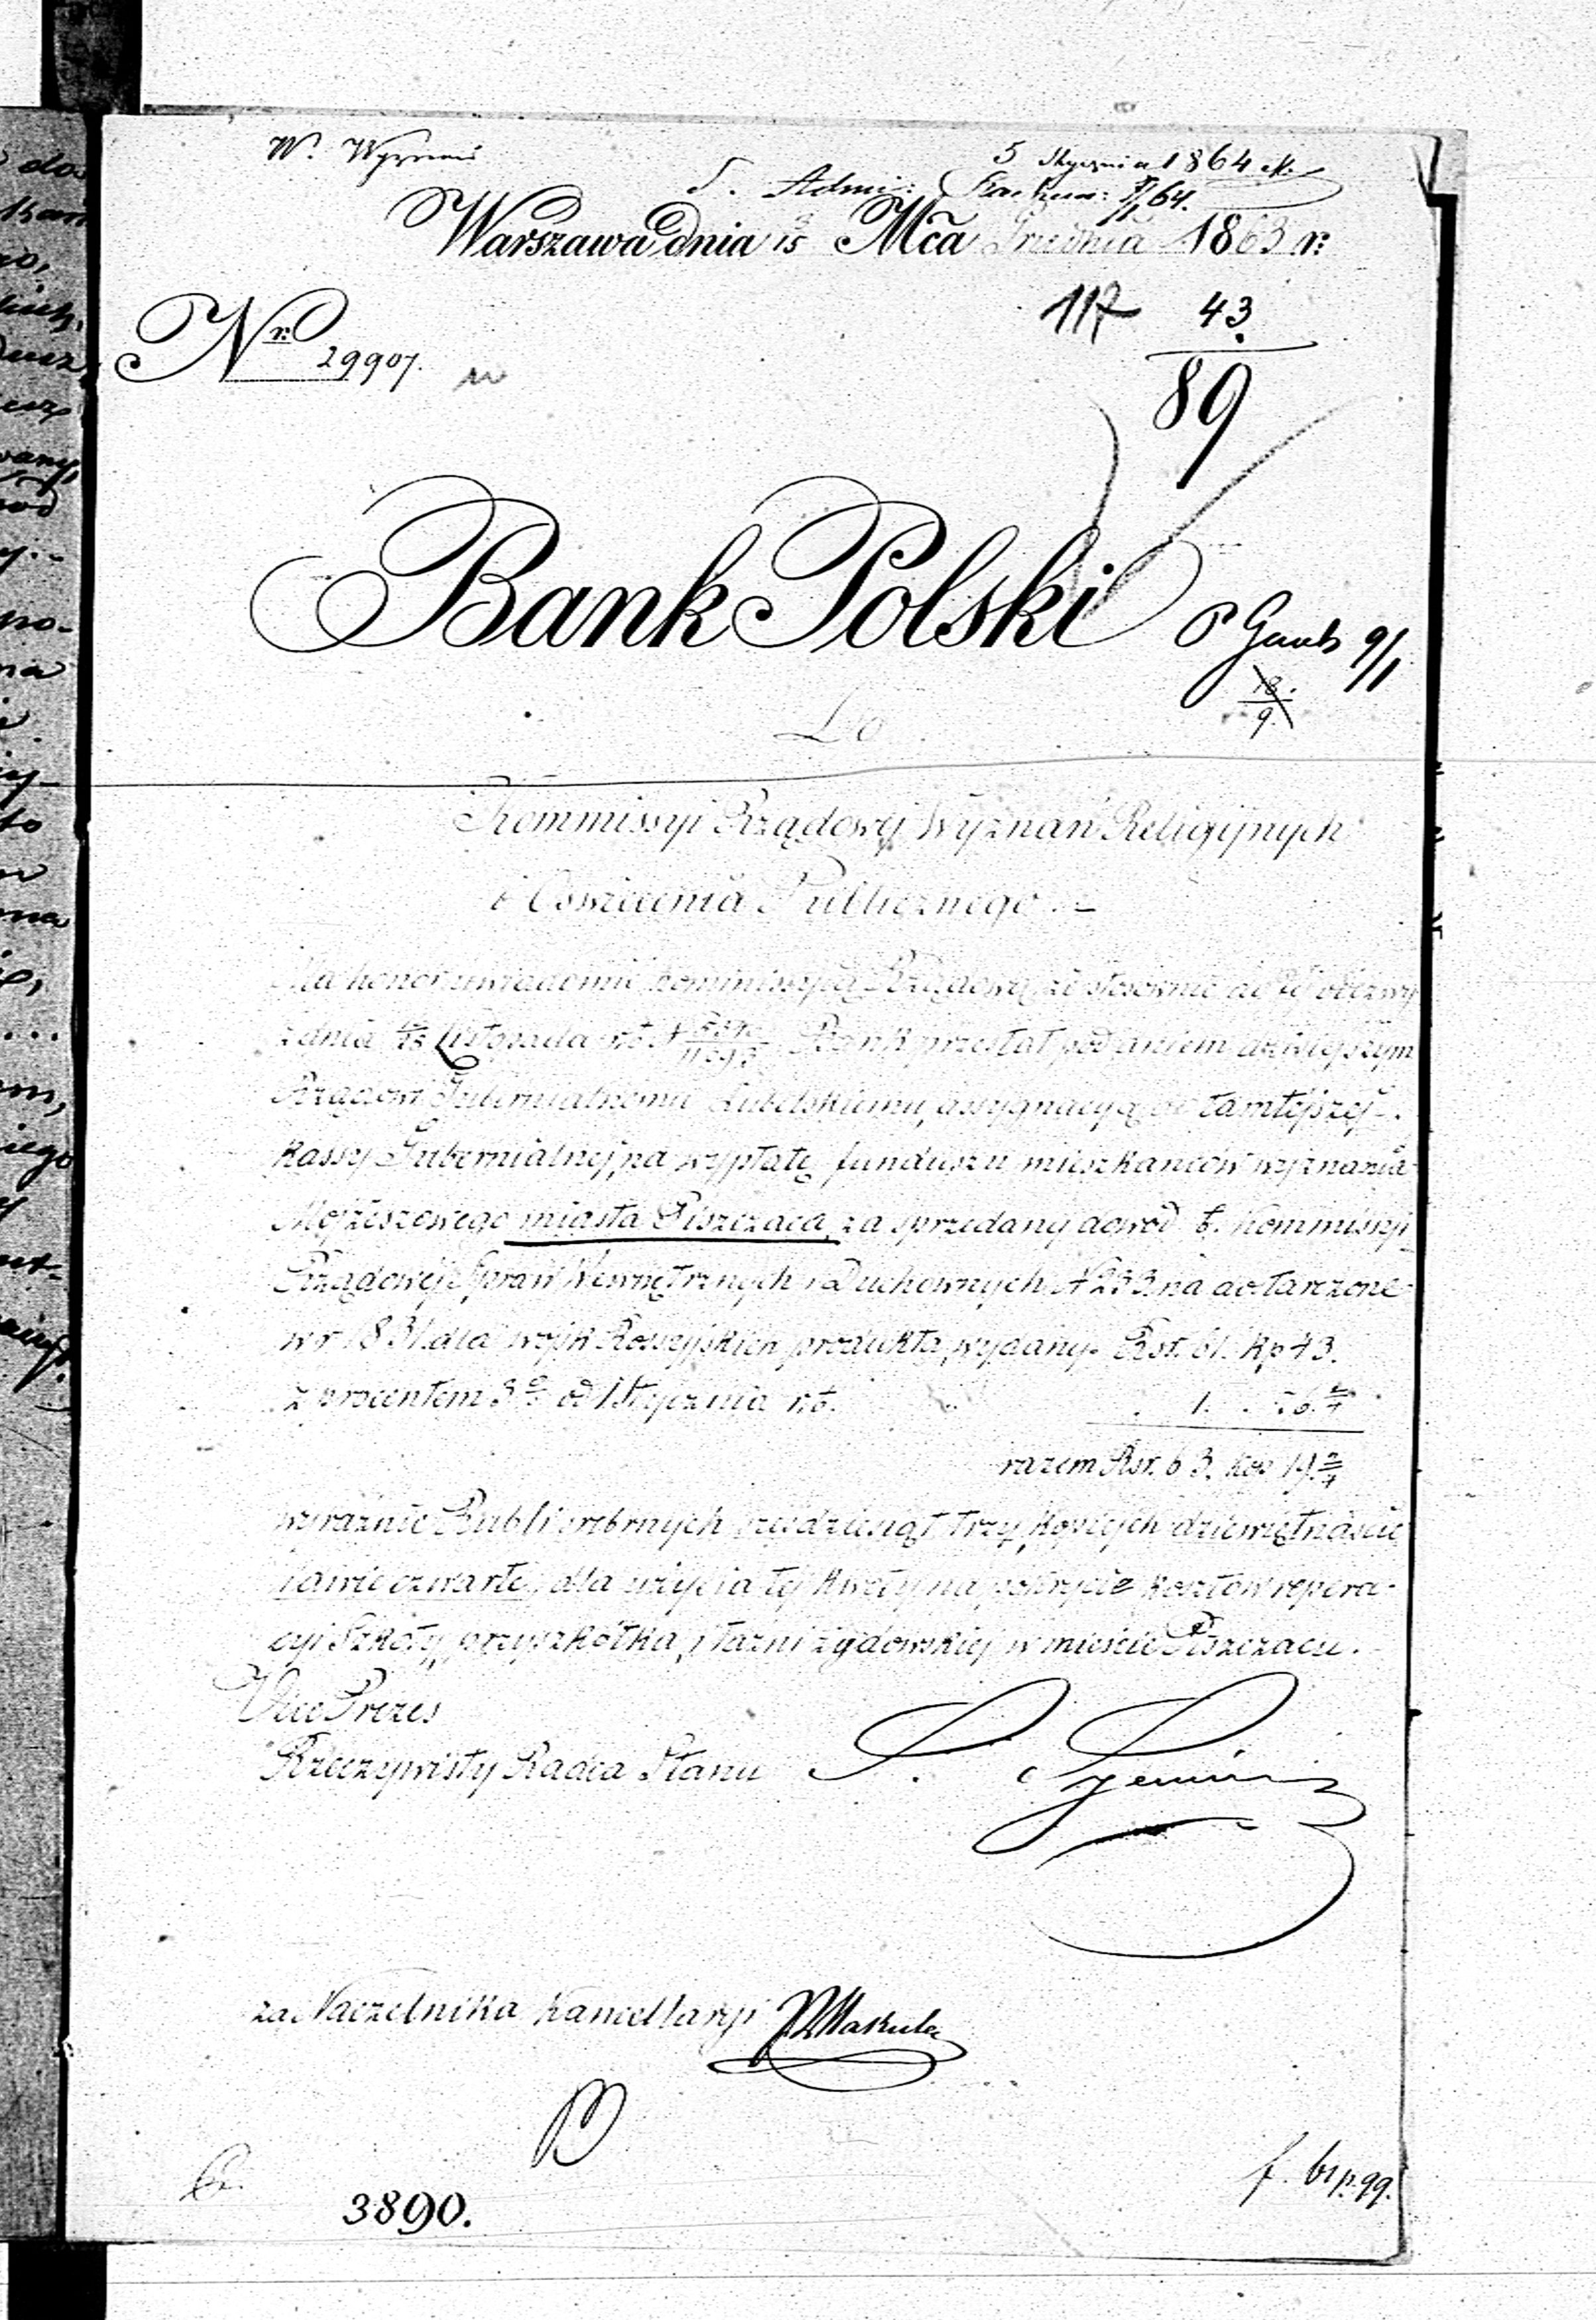 W. Wyznań
5 Stycznia 1864 r.
S. Admi: Rachun: 8/1 64.
Warszawa dnia 3/15 Mca Grudnia 1863 r:
117 43
89
Nr: 29907.
Bank Polski
9/1
18.
9.
Do
Kommissyi Rządowej Wyznań Religijnych
i Oświecenia Publicznego.
Ma honor uwiadomić Kommissyą Rządową, że stosownie do Jej odezwy
z dnia Listopada rb. N Bank przesłał pod dniem dzisiejszym
Rządowi Gubernialnemu Lubelskiemu, assygnacyą do tamtejszej
Kassy Gubernialnej, na wypłatę funduszu mieszkańców wyznania
Mojżeszowego miasta Piszczaca, za sprzedany dowód b. Kommissyi
Rządowej Spraw Wewnętrznych i Duchownych N 233 na dostarczone
w r. 1831. dla wojsk Rossyjskich produkta, wydany. Rsr. 61. kp 43.
z procentem 3% od 1 Stycznia rb. 1. 76.
razem Rsr. 63. kop 19.
wyraźnie Rubli srebrnych sześdziesiąt trzy, kopiejek dziewiętnaście
i dwie czwarte, dla użycia tej kwoty na pokrycie kosztów repera-
cyi Szkoły, przyszkółka, i łaźni żydowskiej w mieście Piszczacu.
Vice Prezes
Rzeczywisty Radca Stanu
za Naczelnika Kancellaryi
3890.
f. 61 p. 99.